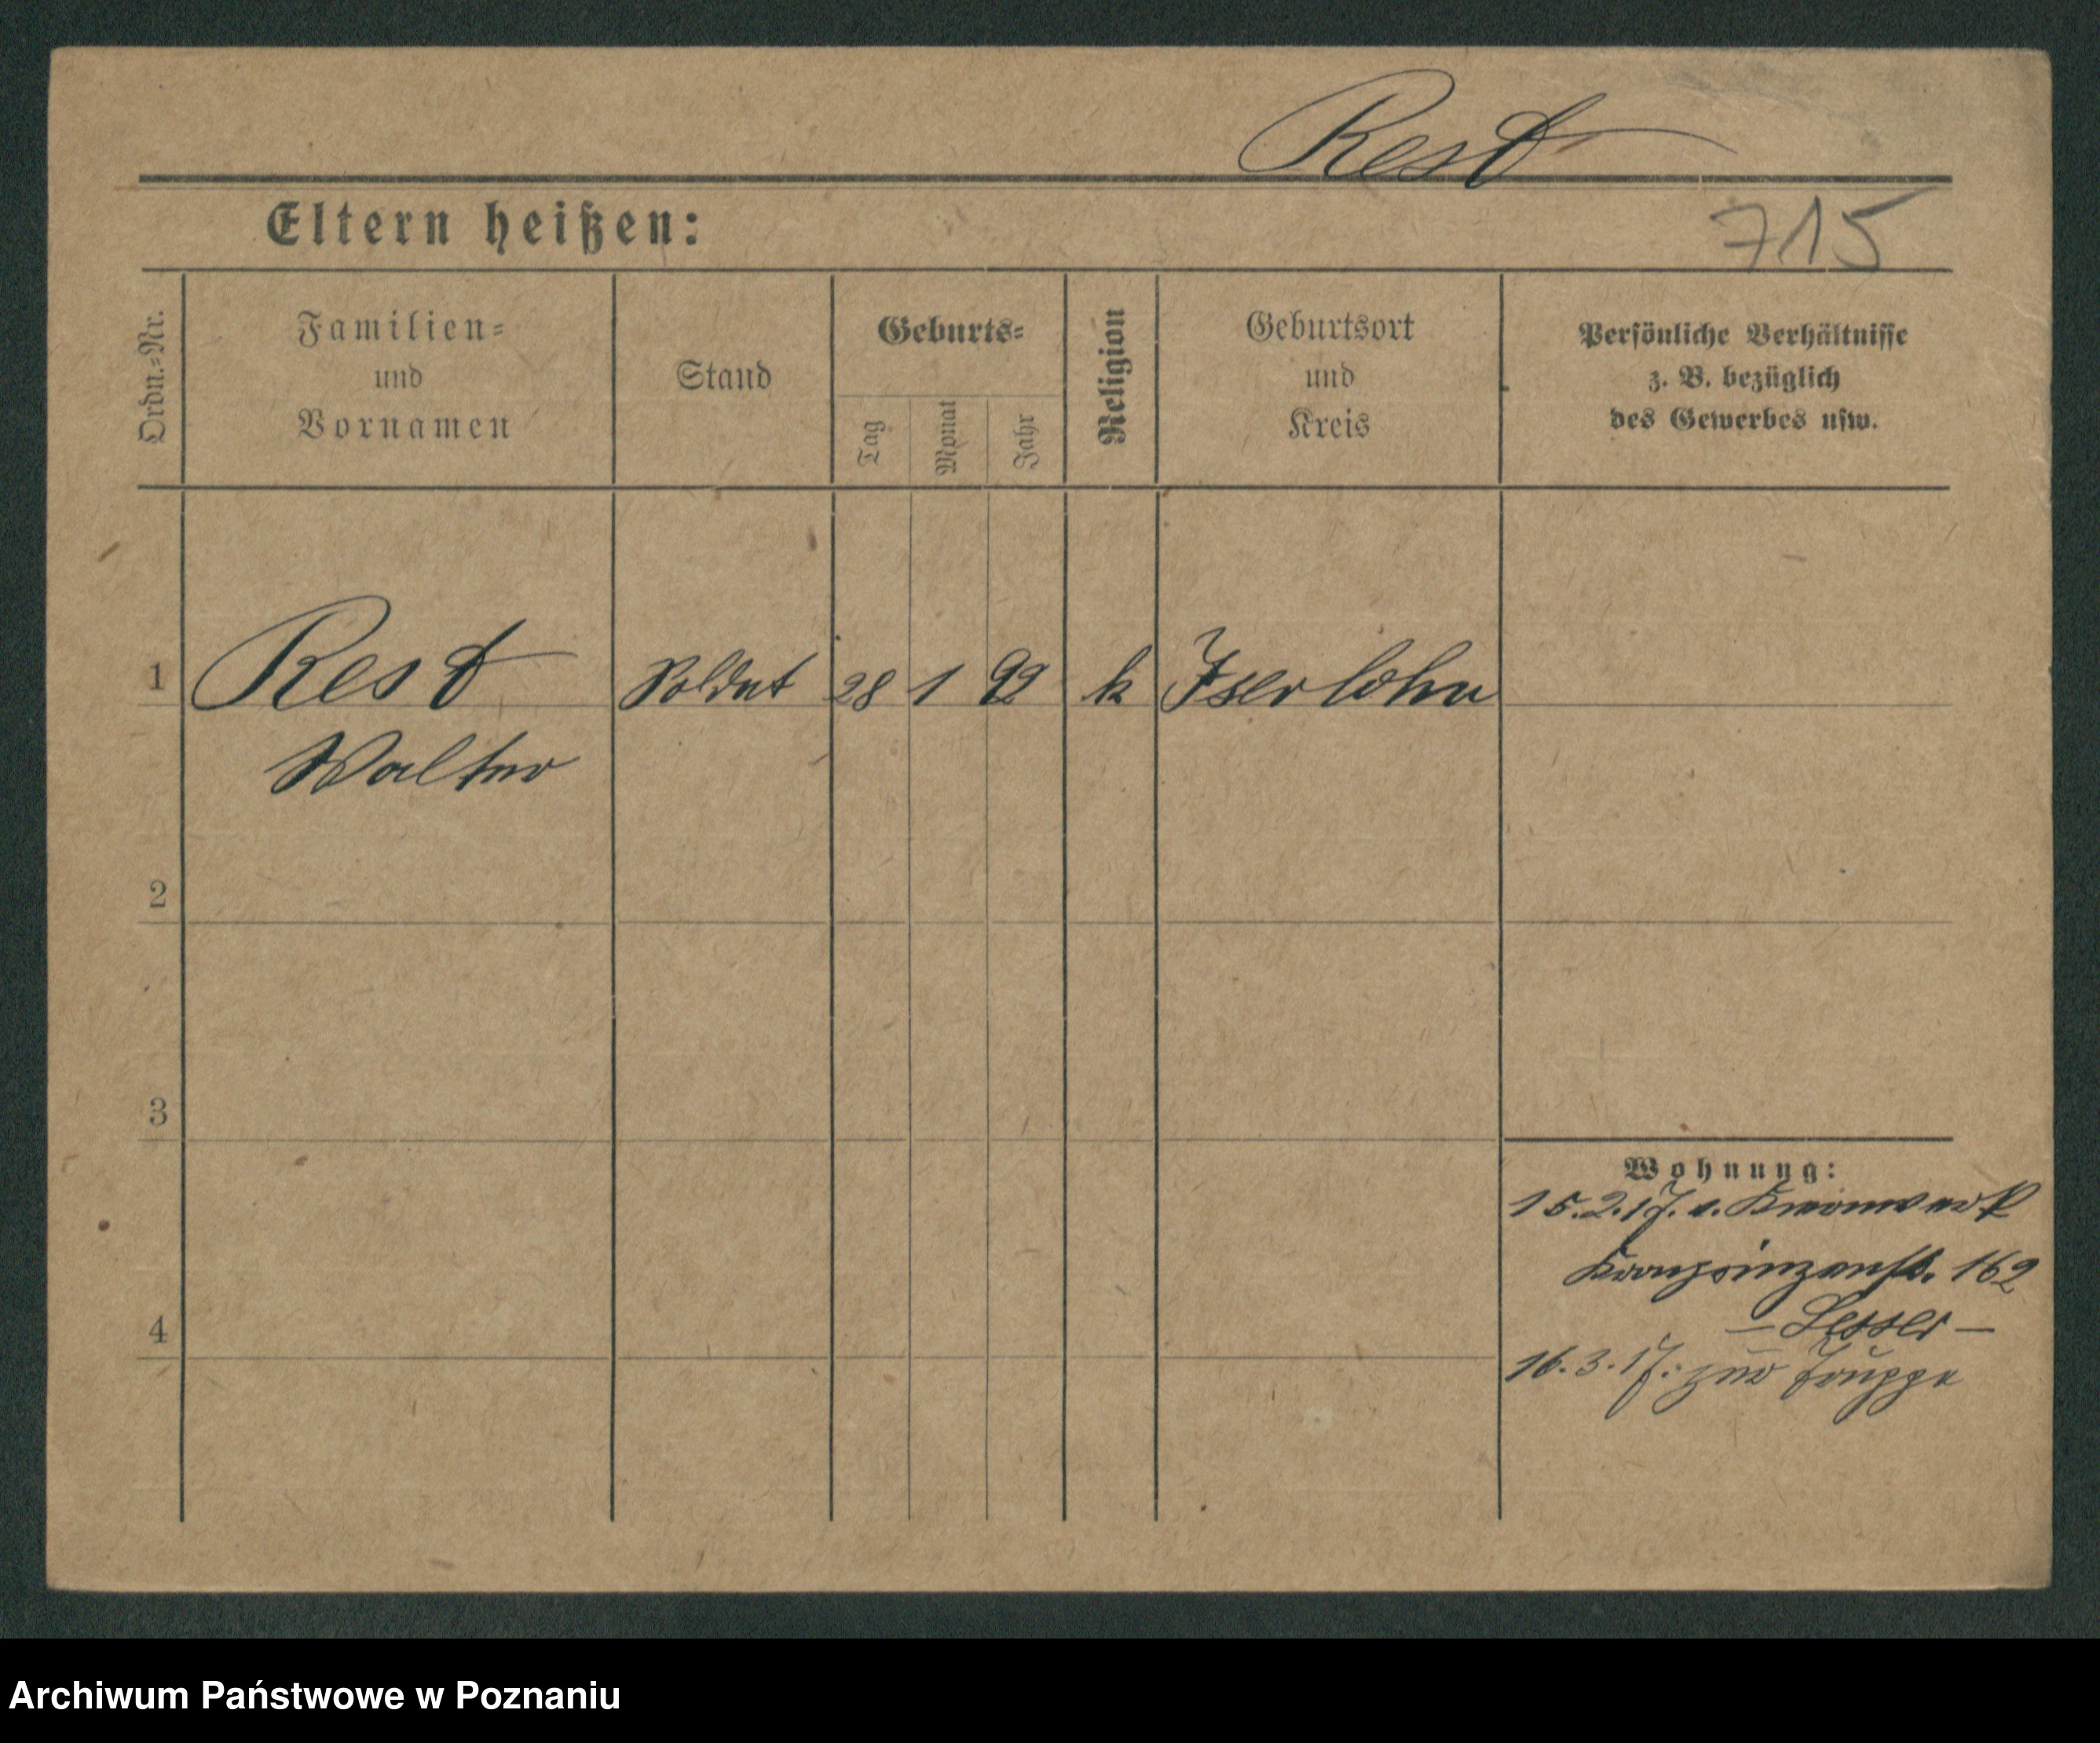 Rest
Eltern heißen:
715
Ordn.=Nr.
Familien=
und
Vornamen
Stand
Geburts=
Tag
Monat
Jahr
Religion
Geburtsort
und
Kreis
Persönliche Verhältnisse
z. B. bezüglich
des Gewerbes usw.
1 Rest Soldat 28 1 99 k Iserlohn
Walter
2
3
Wohnung:
15.2.17. v.
Kronprinzenstr. 162
– Lesser –
4
16.3.17: zur Truppe
Archiwum Państwowe w Poznaniu